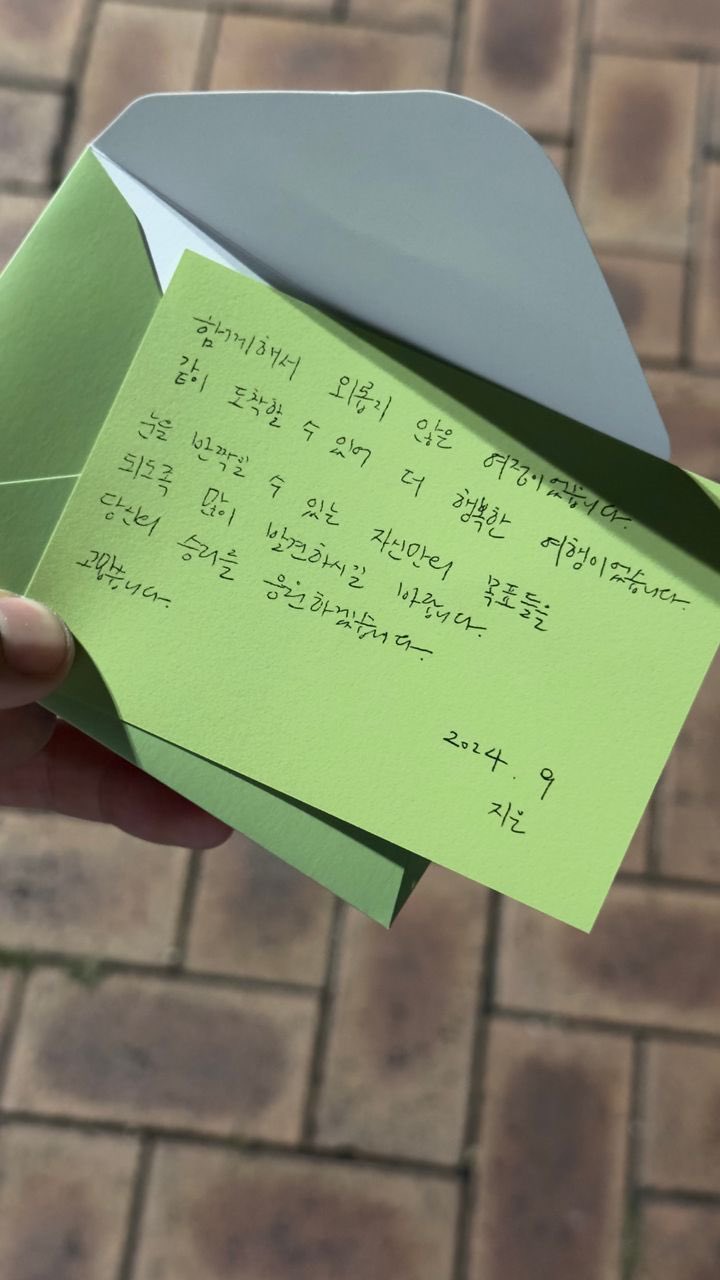 함께해서 외롭지 않은 여정이었습니다.
같이 도착할 수 있어 더 행복한 여행이었습니다.
눈을 반짝일 수 있는 자신만의 목표들을
되도록 많이 발견하시길 바랍니다.
당신의 승리를 응원하겠습니다.
고맙습니다.
2024. 9
지은